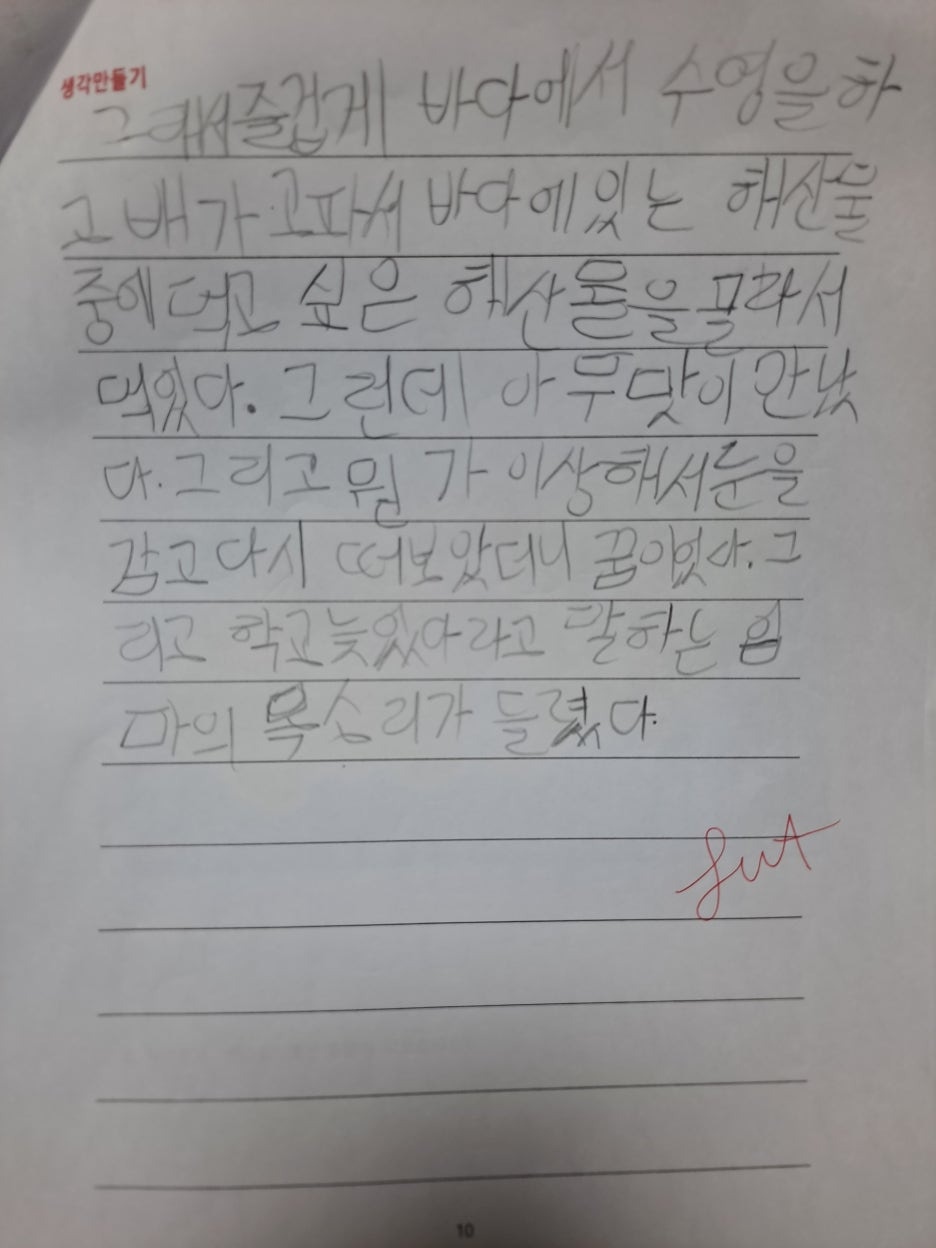 생각만들기
그래서 즐겁게 바다에서 수영을 하
고 배가 고파서 바다에 있는 해산물
중에 먹고 싶은 해산물을 골라서
먹었다. 그런데 아무맛이 안났
다. 그리고 뭔가 이상해서 눈을
감고 다시 떠보았더니 꿈이었다. 그
리고 학교 늦었어라고 말하는 엄
마의 목소리가 들렸다.
10